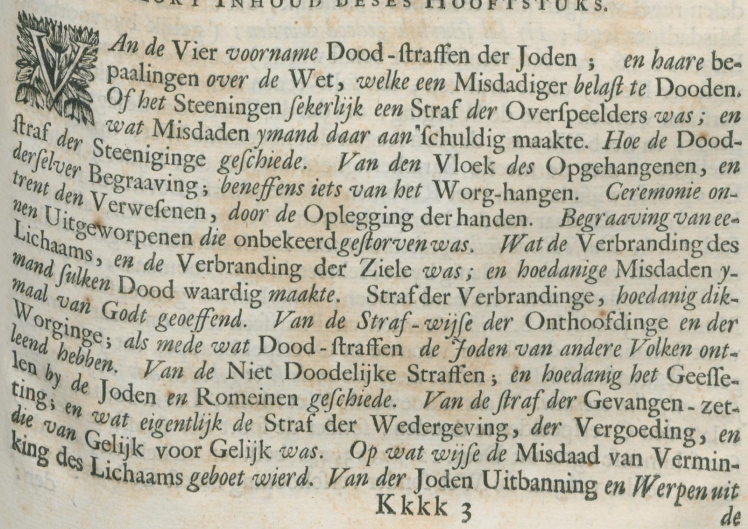 KORT INHOUD DESES HOOFTSTUKS.
VAn de Vier voorname Dood-ſtraffen der Joden ; en haare be-
paalingen over de Wet, welke een Misdadiger belaſt te Dooden.
Of het Steeningen ſekerlijk een Straf der Overſpeelders was; en
wat Misdaden ymand daar aan ſchuldig maakte. Hoe de Dood-
ſtraf der Steeniginge geſchiede. Van den Vloek des Opgehangenen, en
derſelver Begraaving; beneffens iets van het Worg-hangen. Ceremonie on-
trent den Verweſenen, door de Oplegging der handen. Begraaving van ee-
nen Uitgeworpenen die onbekeerd geſtorven was. Wat de Verbranding des
Lichaams, en de Verbranding der Ziele was; en hoedanige Misdaden y-
mand ſulken Dood waardig maakte. Straf der Verbrandinge, hoedanig dik-
maal van Godt geoeffend. Van de Straf-wijſe der Onthoofdinge en der
Worginge; als mede wat Dood-ſtraffen de Joden van andere Volken ont-
leend hebben. Van de Niet Doodelijke Straffen; en hoedanig het Geeſſe-
len by de Joden en Romeinen geſchiede. Van de ſtraf der Gevangen-zet-
ting; en wat eigentlijk de Straf der Wedergeving, der Vergoeding, en
die van Gelijk voor Gelijk was. Op wat wijſe de Misdaad van Vermin-
king des Lichaams geboet wierd. Van der Joden Uitbanning en Werpen uit
Kkkk 3 de